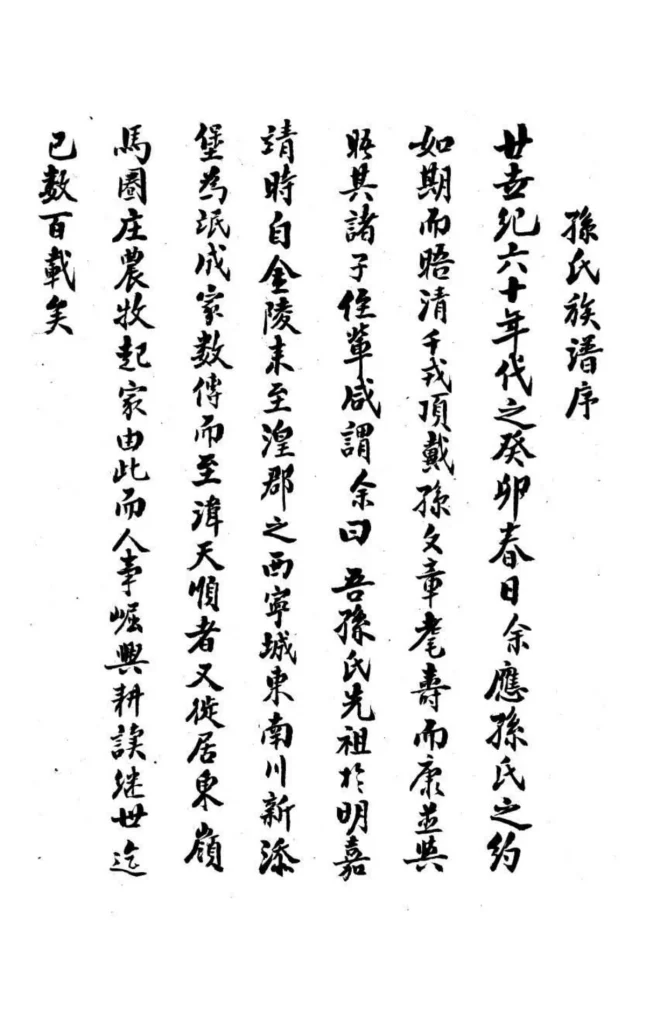 孫氏族譜序
廿世紀六十年代之癸卯春日余應孫氏之約
如期而晤清千戎頂戴孫文章耄壽而康並與
晤其諸子侄輩咸謂余曰吾孫氏先祖於明嘉
靖時自金陵来至湟郡之西寧城東南川新添
堡為氓成家数傳而至諱天順者又徙居東嶺
馬圈庄農牧起家由此而人事崛興耕讀继世迄
已数百載矣